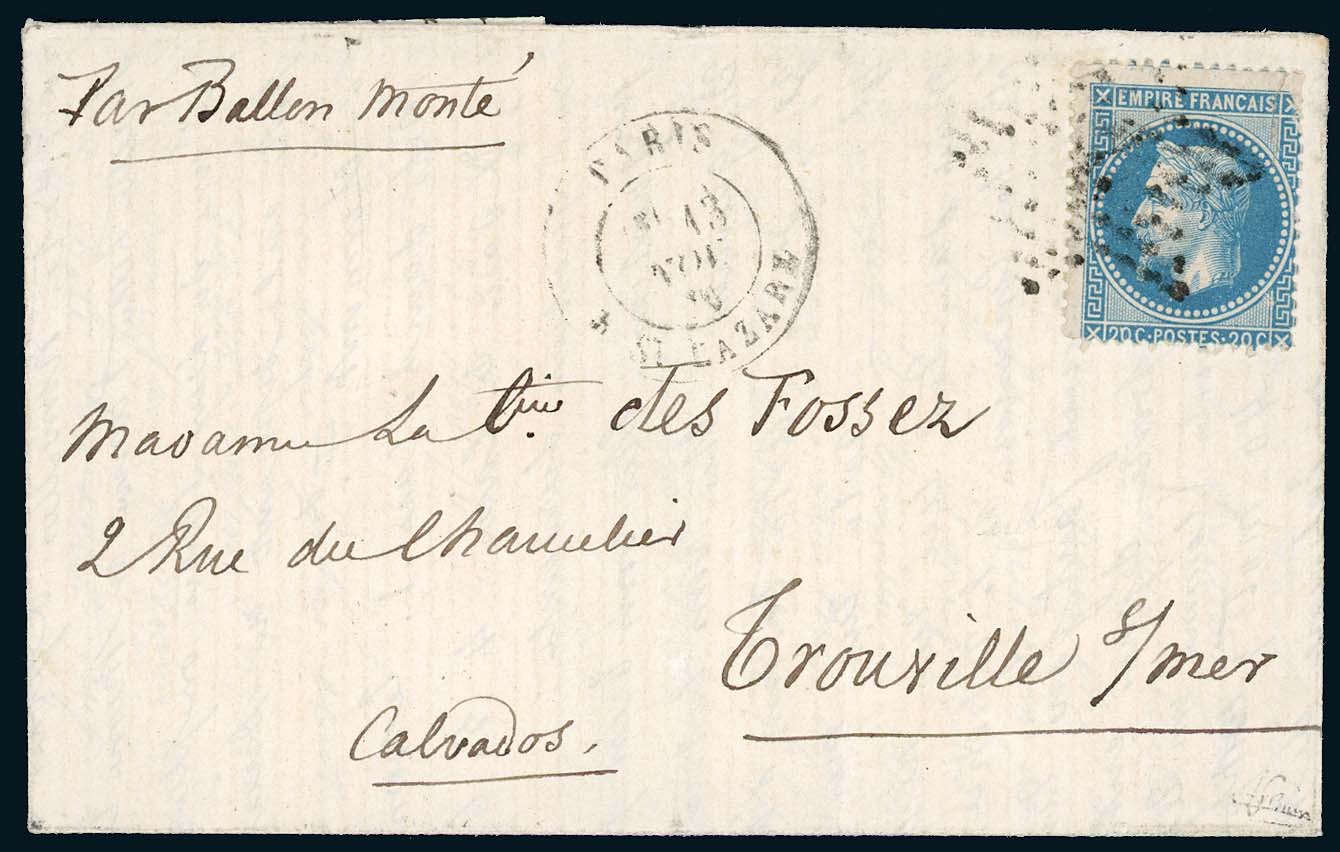 Par Ballon Monté
PARIS
13
NOV
ST LAZARE
EMPIRE FRANÇAIS
20 C · POSTES · 20 C
Madame La des Fossez
2 Rue du
Trouville s/mer
Calvados.